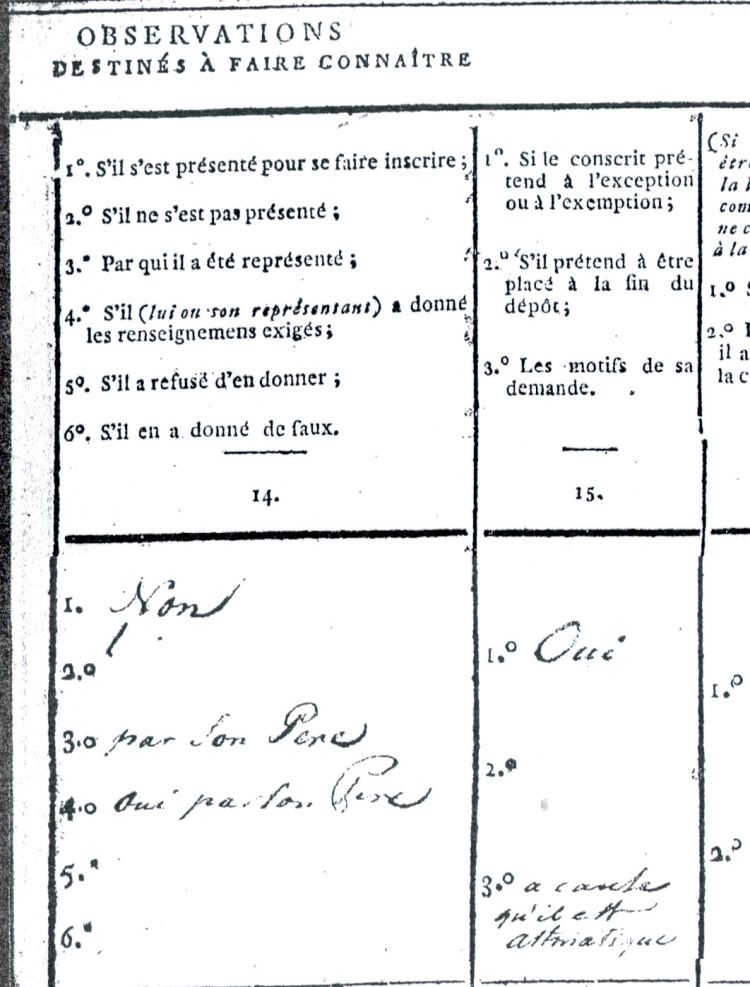 OBSERVATIONS
DESTINÉS À FAIRE CONNAÎTRE
1º. S'il s'est présenté pour se faire inscrire ;
2.º S'il ne s'est pas présenté ;
3.º Par qui il a été représenté ;
4.º S'il (lui ou son représentant) a donné
les renseignemens exigés ;
5º. S'il a refusé d'en donner ;
6º. S'il en a donné de faux.
14.
1. Non
2.º
3.º par son Pere
4.º Oui par son Pere
5.º
6.º
1º. Si le conscrit pré-
tend à l'exception
ou à l'exemption ;
2.º S'il prétend à être
placé à la fin du
dépôt ;
3.º Les motifs de sa
demande.
15.
1.º Oui
2.º
3.º a cause
qu'il est
attmatique
(Si
êtr
la
com
ne c
à la
1.º
2.º
il a
la c
1.º
2.º